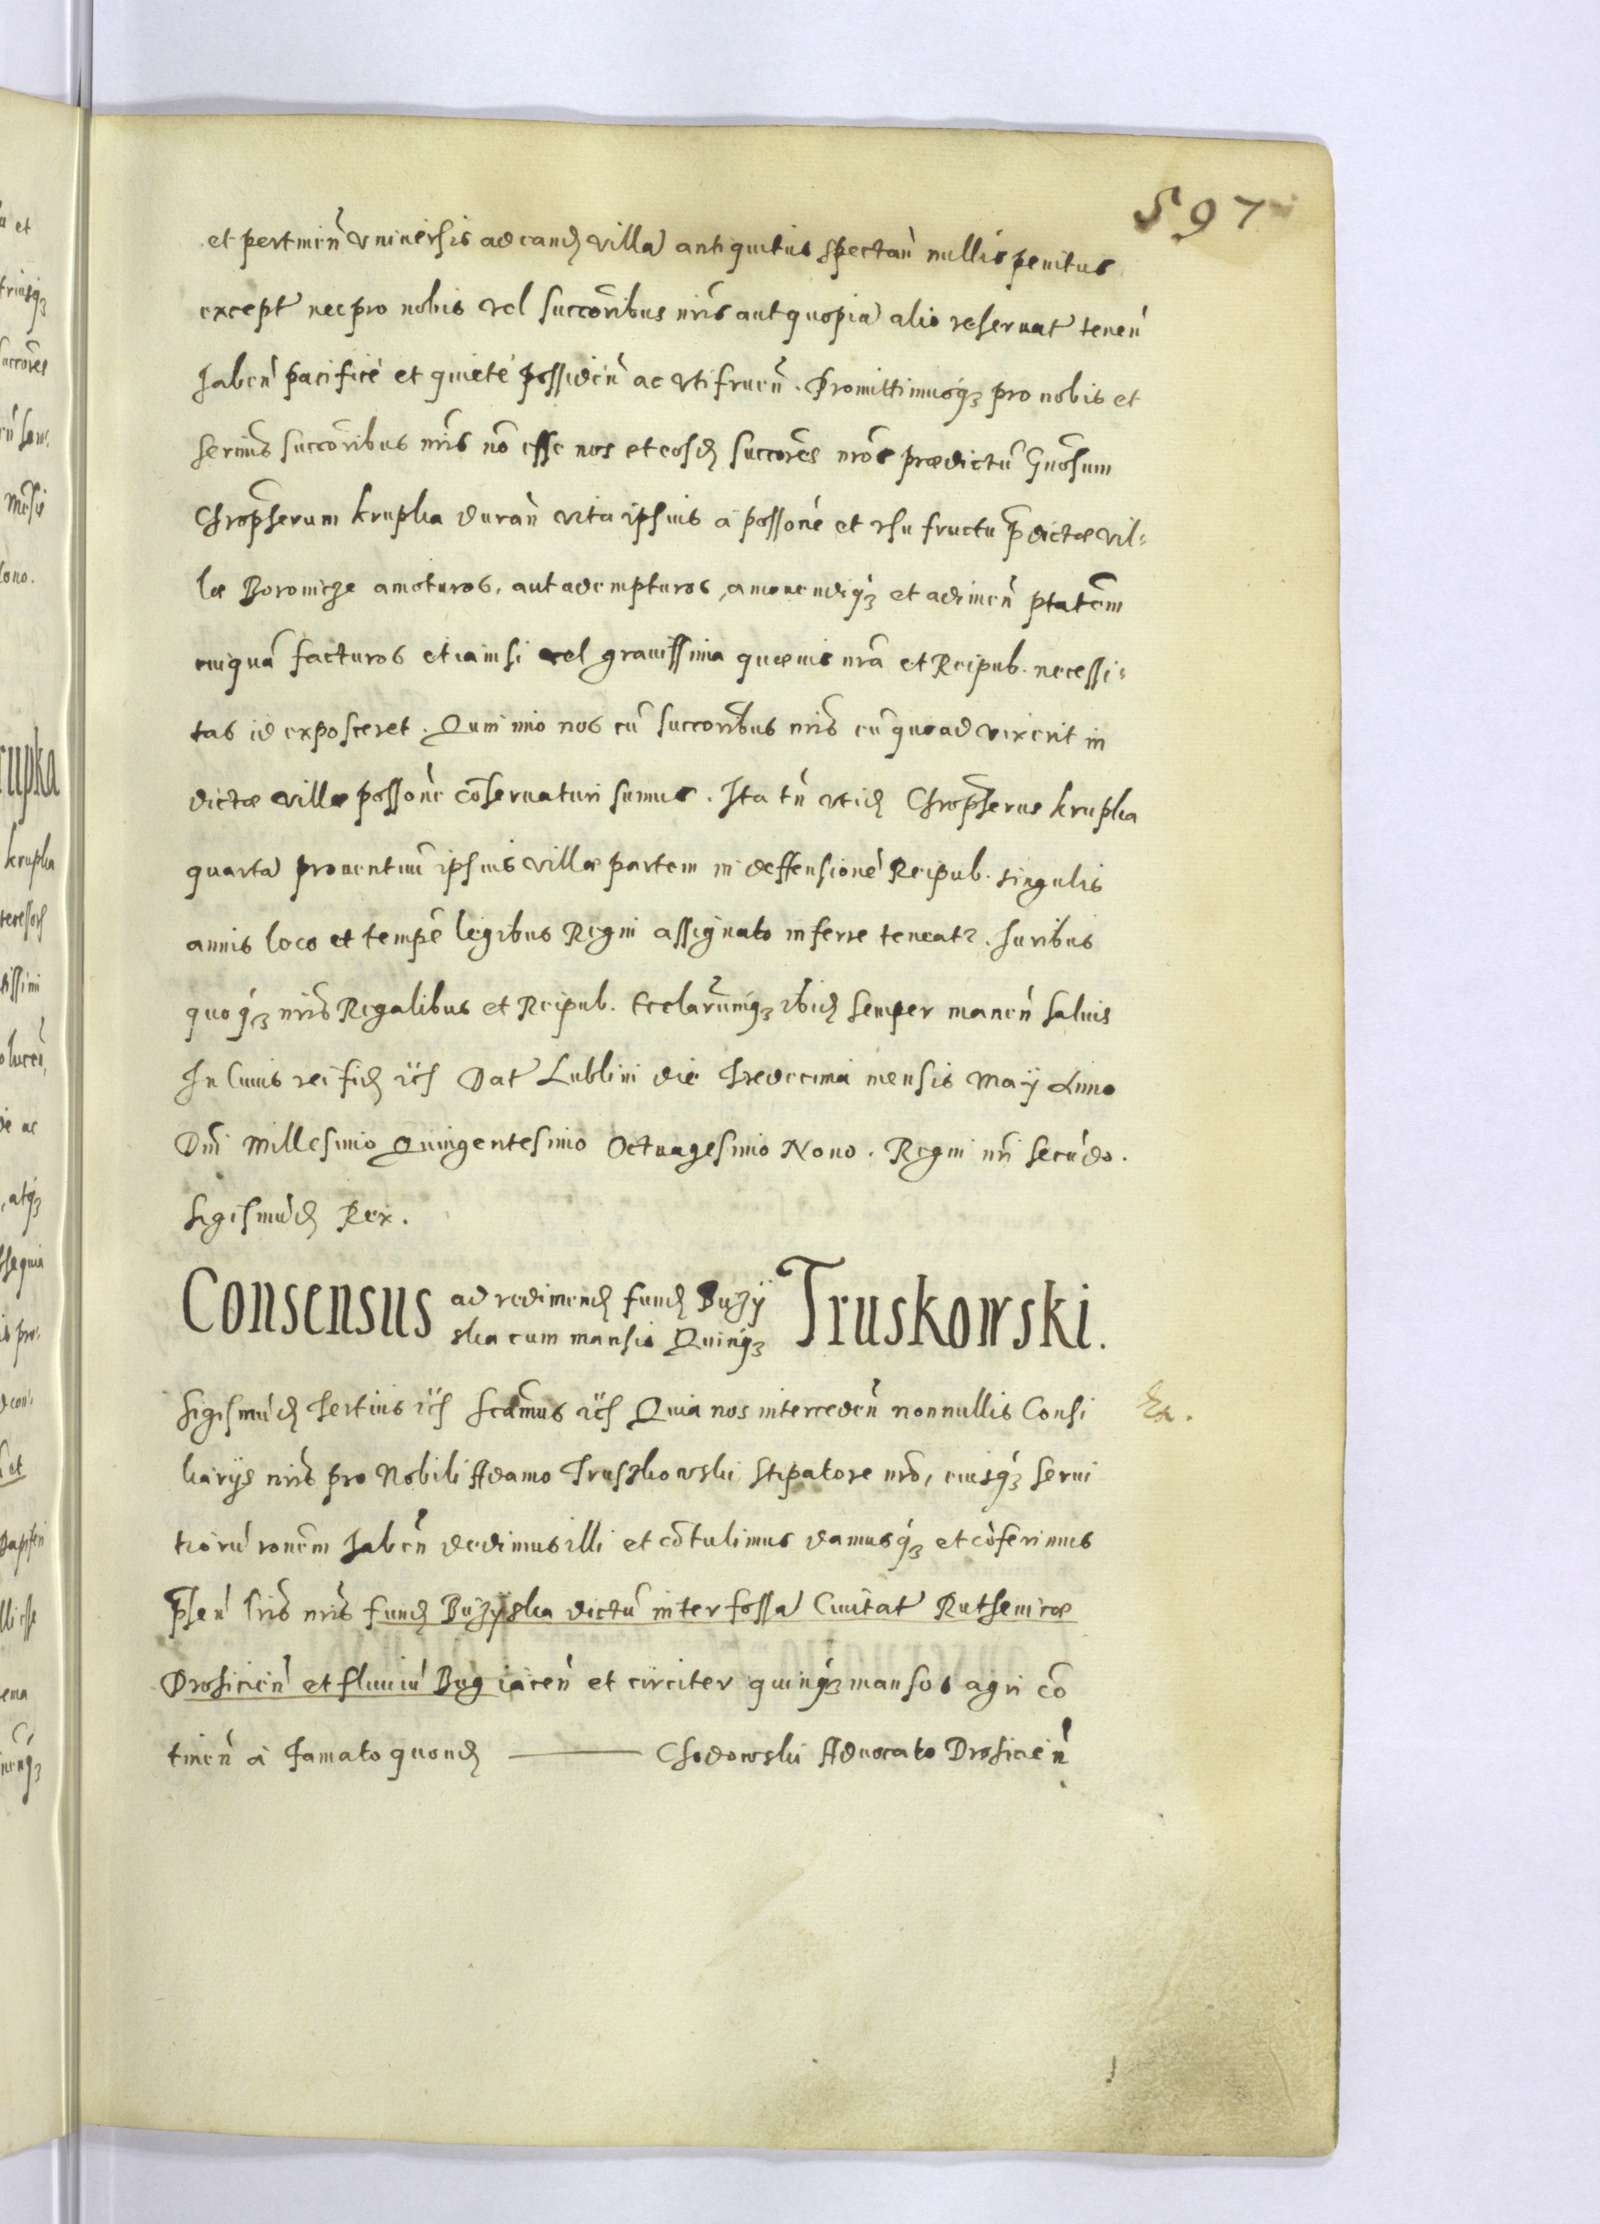 597
et pertineñ vniuersis ad eandꝫ villã antiquitus spectañ nullis penitus
except nec pro nobis vel succoribus nr̃is aut quopiã alio reseruat teneñ
habeñ pacificè et quietè possideñ ac vtifrueñ. Promittimusqꝫ pro nobis et
sermis succoribus nr̃is nõ esse nos et eosdꝫ succores nr̃os prædictũ Gnosum
Chrõpherum Krupka durañ vita ipsius à possone et vsu fructu p̃dictæ vil=
læ Boroniczе amoturos, aut adempturos, amouendiqꝫ et adimeñ ptatem
cuiquã facturos etiamsi vel grauissima quæuis nr̃a et Reipub. necessi=
tas id exposceret. Quinimo nos cũ succoribus nr̃is eũ quoad vixerit in
dictæ villæ possone cõseruaturi sumus. Ita tñ vt idꝫ Chrõpherus Krupka
quartã prouentuũ ipsius villæ partem in deffensionẽ Reipub. singulis
annis loco et tempe legibus Regni assignato inferre teneatr. Iuribus
quoqꝫ nr̃is Regalibus et Reipub. Ecclarumqꝫ ibidꝫ semper maneñ saluis
In Cuius rei fidꝫ etc Dat Lublini die Tredecima mensis Maij Anno
Dñi Millesimo Quingentesimo Octuagesimo Nono. Regni nr̃i secũdo.
Sigismũdꝫ Rex.
Consensus ad redimendꝫ fundꝫ Bużÿ Truskowski.
ska cum mansis Quinqꝫ
Sigismũdꝫ Tertius etc Scãmus etc Quia nos intercedeñ nonnullis Consi
liarijs nr̃is pro Nobili Adamo Truszkowski stipatore nr̃o, eiusqꝫ serui
tiorũ ronem habeñ dedimus illi et cõtulimus damusqꝫ et cõferimus
p̃señ lr̃is nr̃is fundꝫ Bużÿska dictũ inter fossã Ciuitat Ruthenicæ
Drohicieñ et fluuiũ Bug iaceñ et circiter quinqꝫ mansos agri cõ
tineñ à famato quondꝫ ——— Chodowski Aduocato Drohicieñ